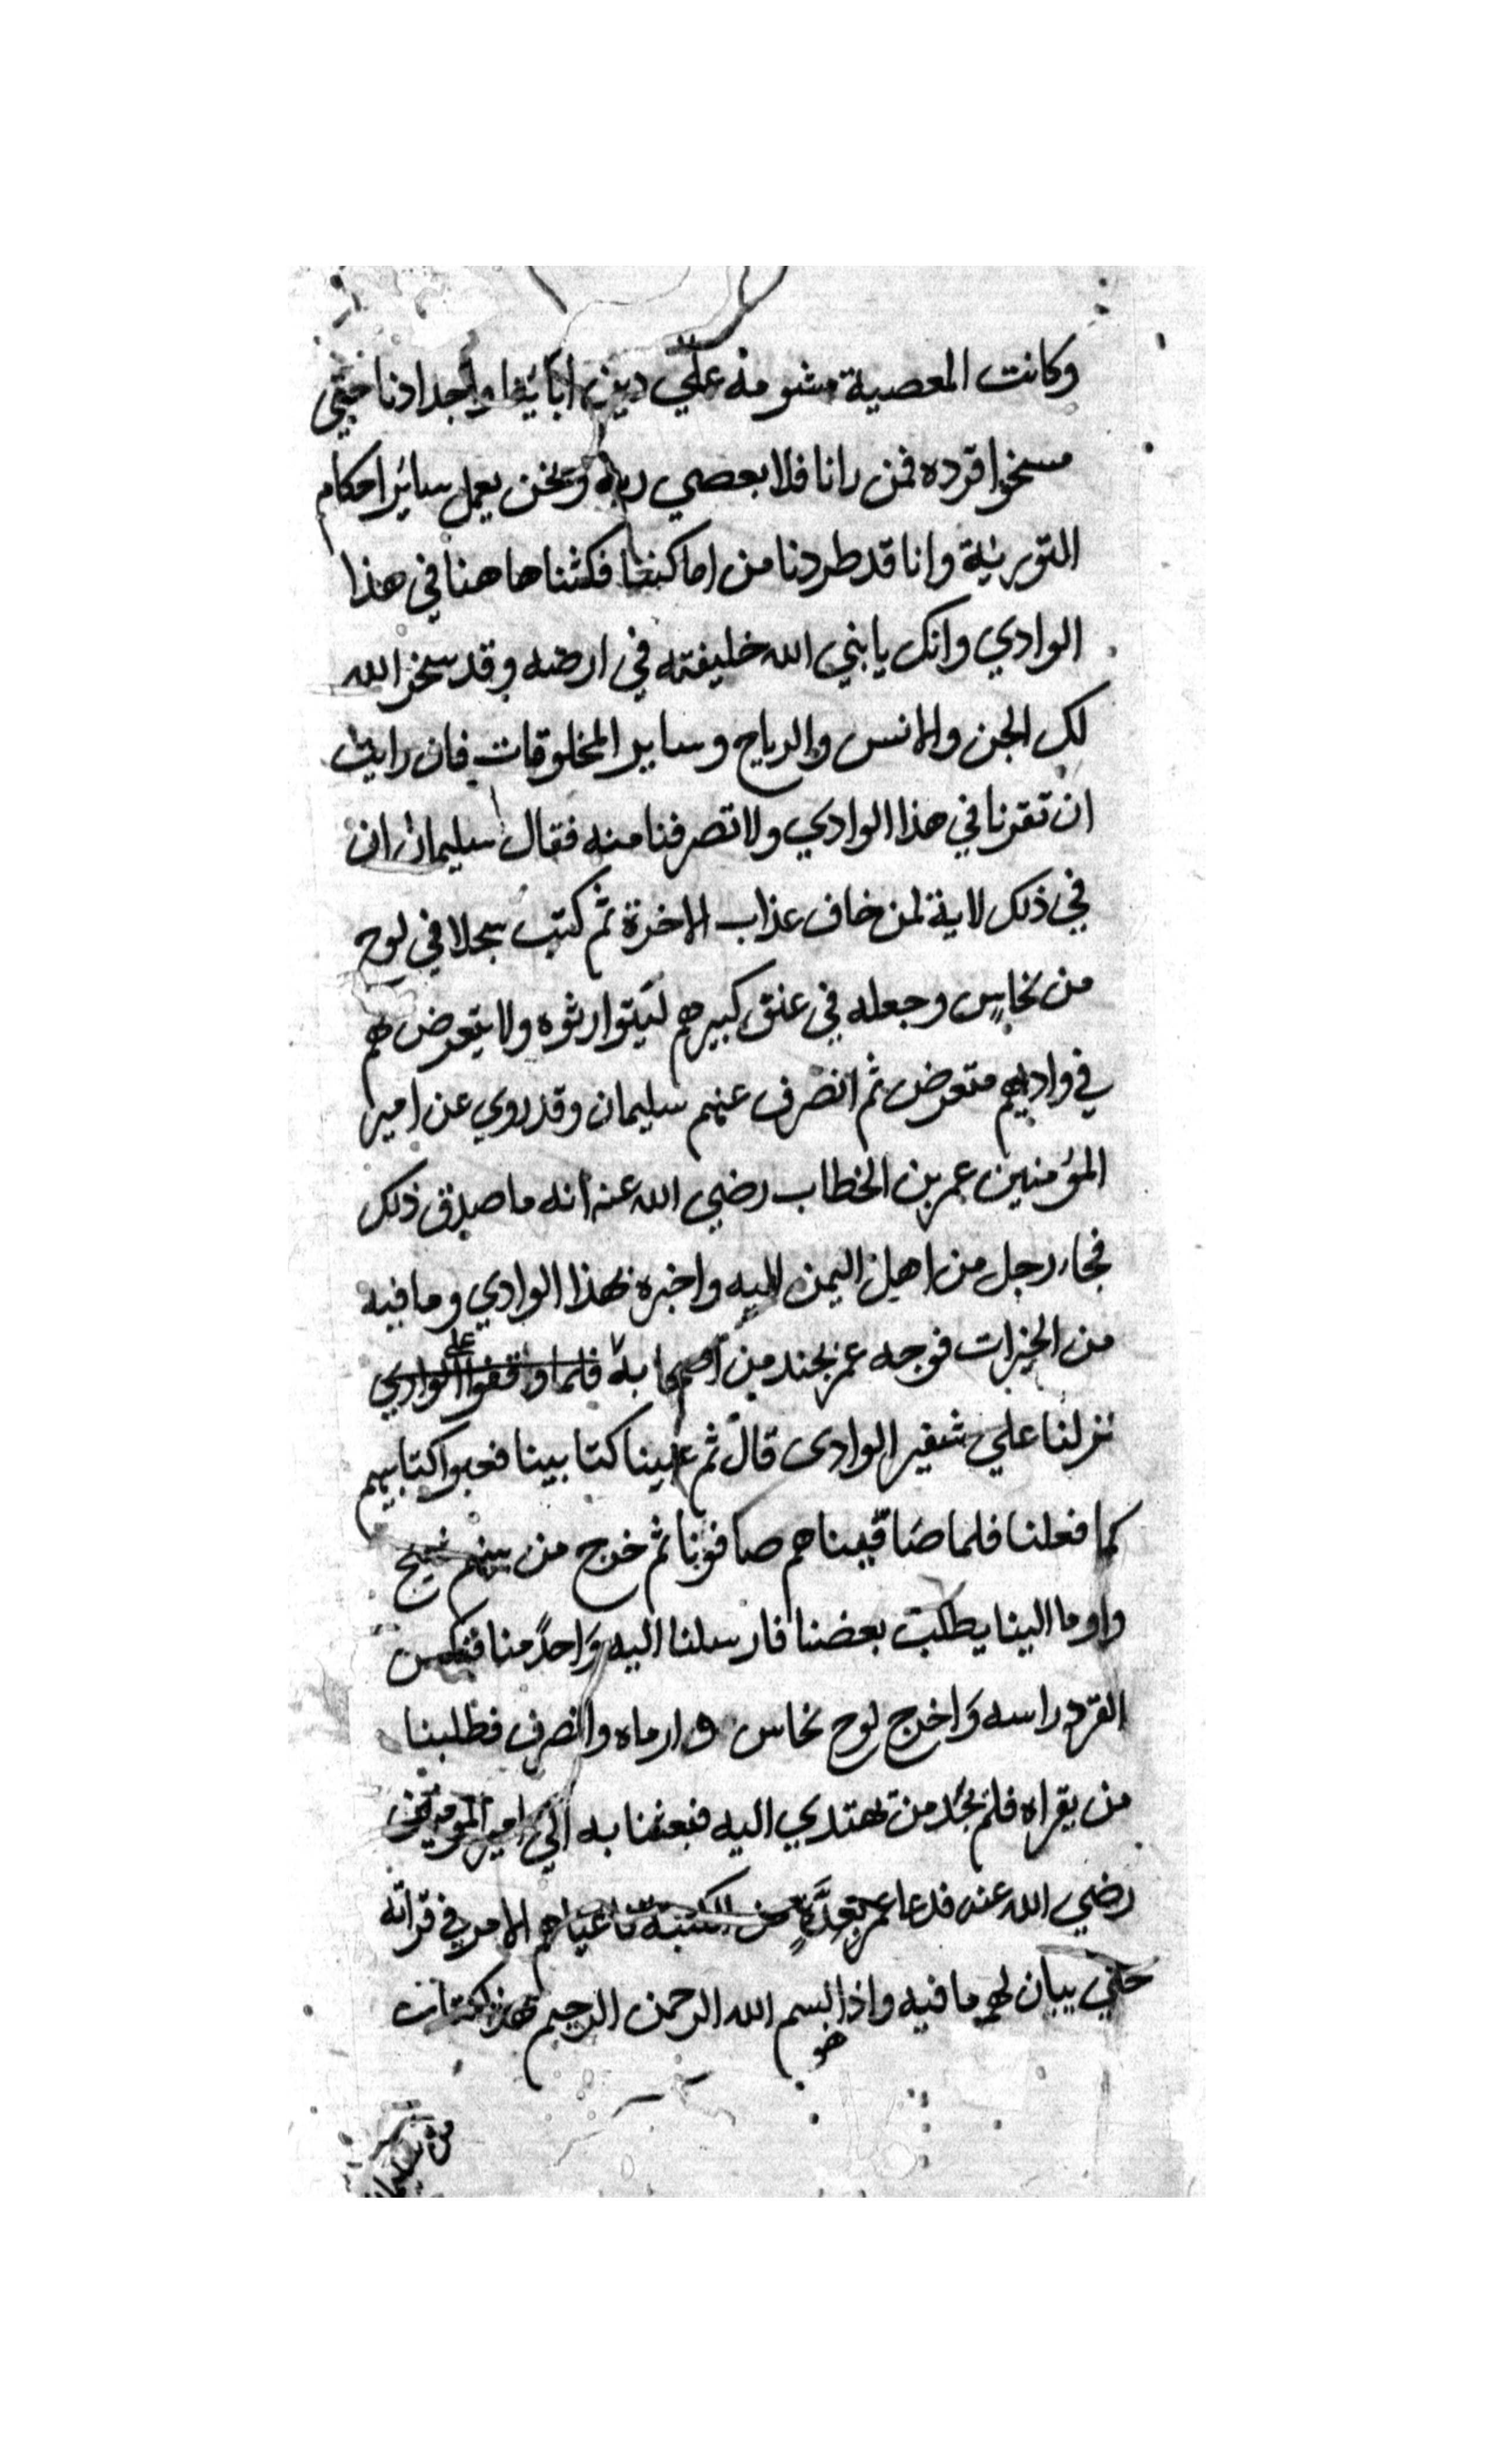 وكانت المعصية مشومه علي دين ابائنا واجدادنا حتي
مسخوا قرده فمن رانا فلا يعصي ربه ونحن يعمل سائر احكام
التورية وانا قد طردنا من اماكننا فكثنا هاهنا في هذا
الوادي وانك يا بني الله خليفته في ارضه وقد سخر الله
لك الجن والانس والرياح وساير المخلوقات فان رايت
ان تقرنا في هذا الوادي ولا تصرفنا منه فقال سليمان ان
في ذلك لاية لمن خاف عذاب الاخرة ثم كتب سجلا في لوح
من نحاس وجعله في عنق كبيرهم ليتوارثوه ولا يتعرض لهم
في واديهم متعرض ثم انصرف عنهم سليمان وقد روي عن امير
المؤمنين عمر بن الخطاب رضي الله عنه انه ما صدق ذلك
فجاء رجل من اهل اليمن اليه واخبره بهذا الوادي وما فيه
من الخيرات فوجه عمر بجند من اصحابه فلما واقفوا علي الوادي
نزلنا علي شفير الوادى قال ثم عبينا كتابينا فعبوا كتابيهم
كما فعلنا فلما صافيناهم صافونا ثم خرج من بينهم شيخ
واوما الينا يطلب بعضنا فارسلنا اليه واحدً منا فنكس
القرد راسه واخرج لوح نحاس وارماه وانصرف فطلبنا
من يقراه فلم نجد من يهتدي اليه فبعثنا به الي امير المومنين
رضي الله عنه فدعا عمر بعدة من الكتبة فاعياهم الامر في قراته
حتي يبان لهم ما فيه واذا هو بسم الله الرحمن الرحيم هذا كتاب
من سليمان